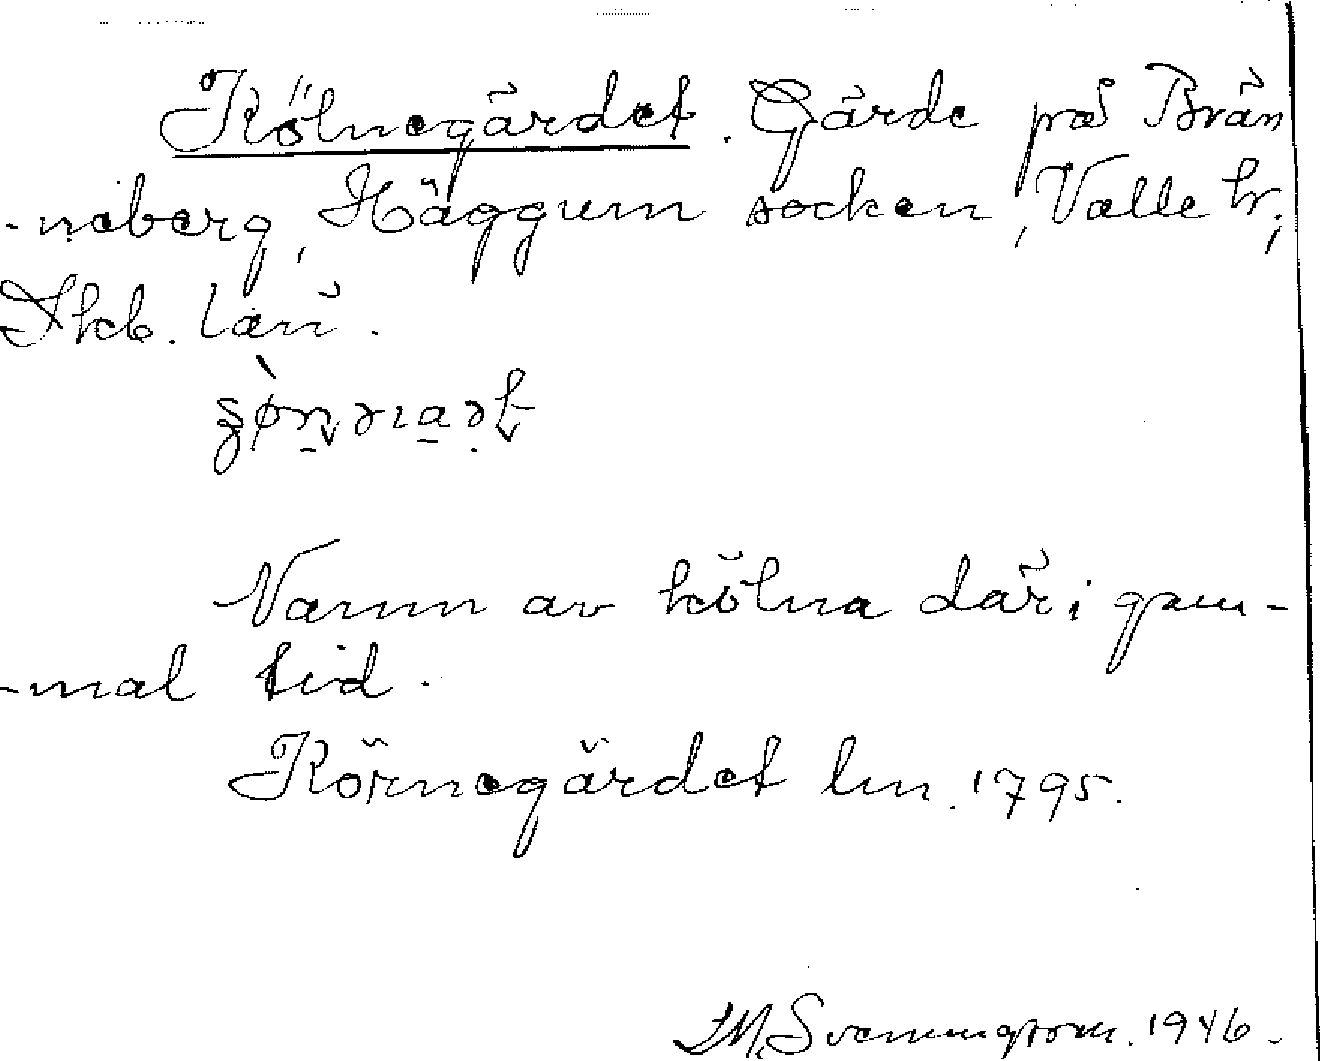 Kölnegärdet. Gärde på Brän
-neberg, Häggum socken, Valle hr,
Skb. län.
Namn av kölna där i gam-
-mal tid.
Körnegärdet lm. 1795.
1946.